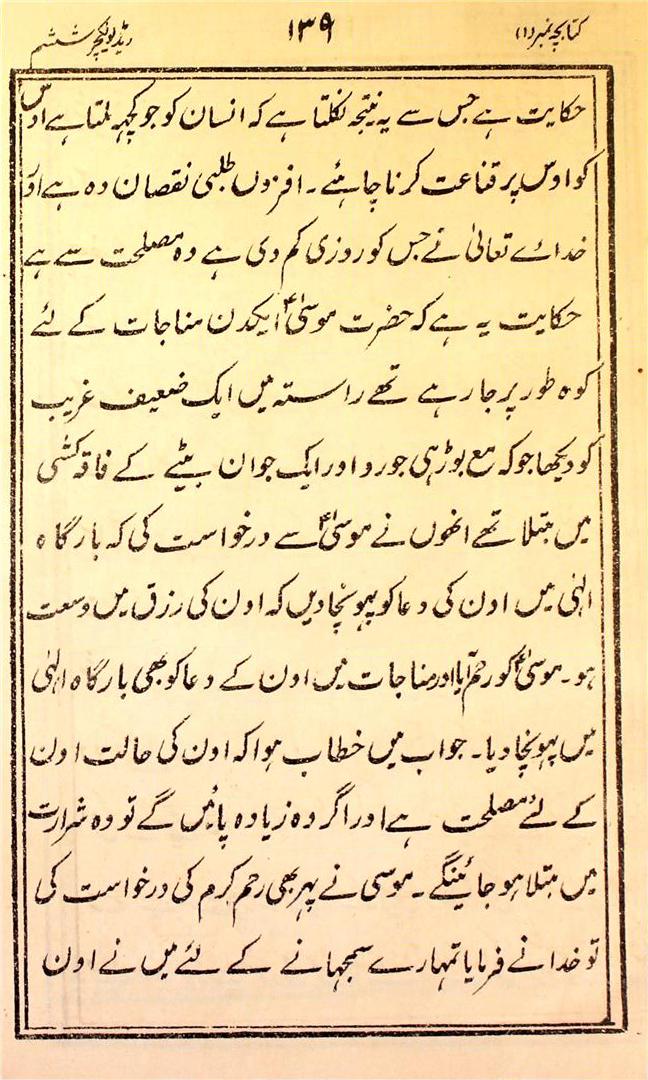 کتابچہ نمبر (۱) ۱۳۹ ریڈیو لکچر ششم
حکایت ہے جس سے یہ نتیجہ نکلتا ہے کہ انسان کو جو کچہہ ملتا ہے اوس
کو اوس پر قناعت کرنا چاہئے ۔ افزوں طلبی نقصان دہ ہے اور
خدائے تعالیٰ نے جس کو روزی کم دی ہے وہ مصلحت سے ہے
حکایت یہ ہے کہ حضرت موسیٰؑ ایکدن مناجات کے لئے
کوہ طور پر جا رہے تھے راستہ میں ایک ضعیف غریب
کو دیکھا جو کہ مع بوڑہی جورو اور ایک جوان بیٹے کے فاقہ کشی
میں مبتلا تھے انھوں نے موسیٰؑ سے درخواست کی کہ بارگاہ
الہٰی میں اون کی دعا کو پہونچا دیں کہ اون کی رزق میں وسعت
ہو ۔ موسیٰؑ کو رحم آیا اور مناجات میں اون کے دعا کو بھی بارگاہ الہٰی
میں پہونچا دیا ۔ جواب میں خطاب ہوا کہ اون کی حالت اون
کے لئے مصلحت ہے اور اگر وہ زیادہ پائیں گے تو وہ شرارت
میں مبتلا ہو جائینگے ۔ موسی نے پہر بھی رحم کرم کی درخواست کی
تو خدا نے فرمایا تمہارے سمجہانے کے لئے میں نے اون